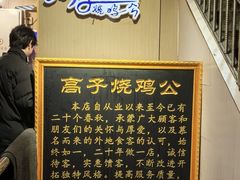 烧鸡公
高子烧鸡公
本店自从业以来至今已有
二十个春秋，承蒙广大顾客和
朋友们的关怀与厚爱，以及慕
名而来的外地食客的认可，始
终如一，二十年做一店，诚信
待客，实惠馈客，不断改进开
拓独特风格。提高服务质量，